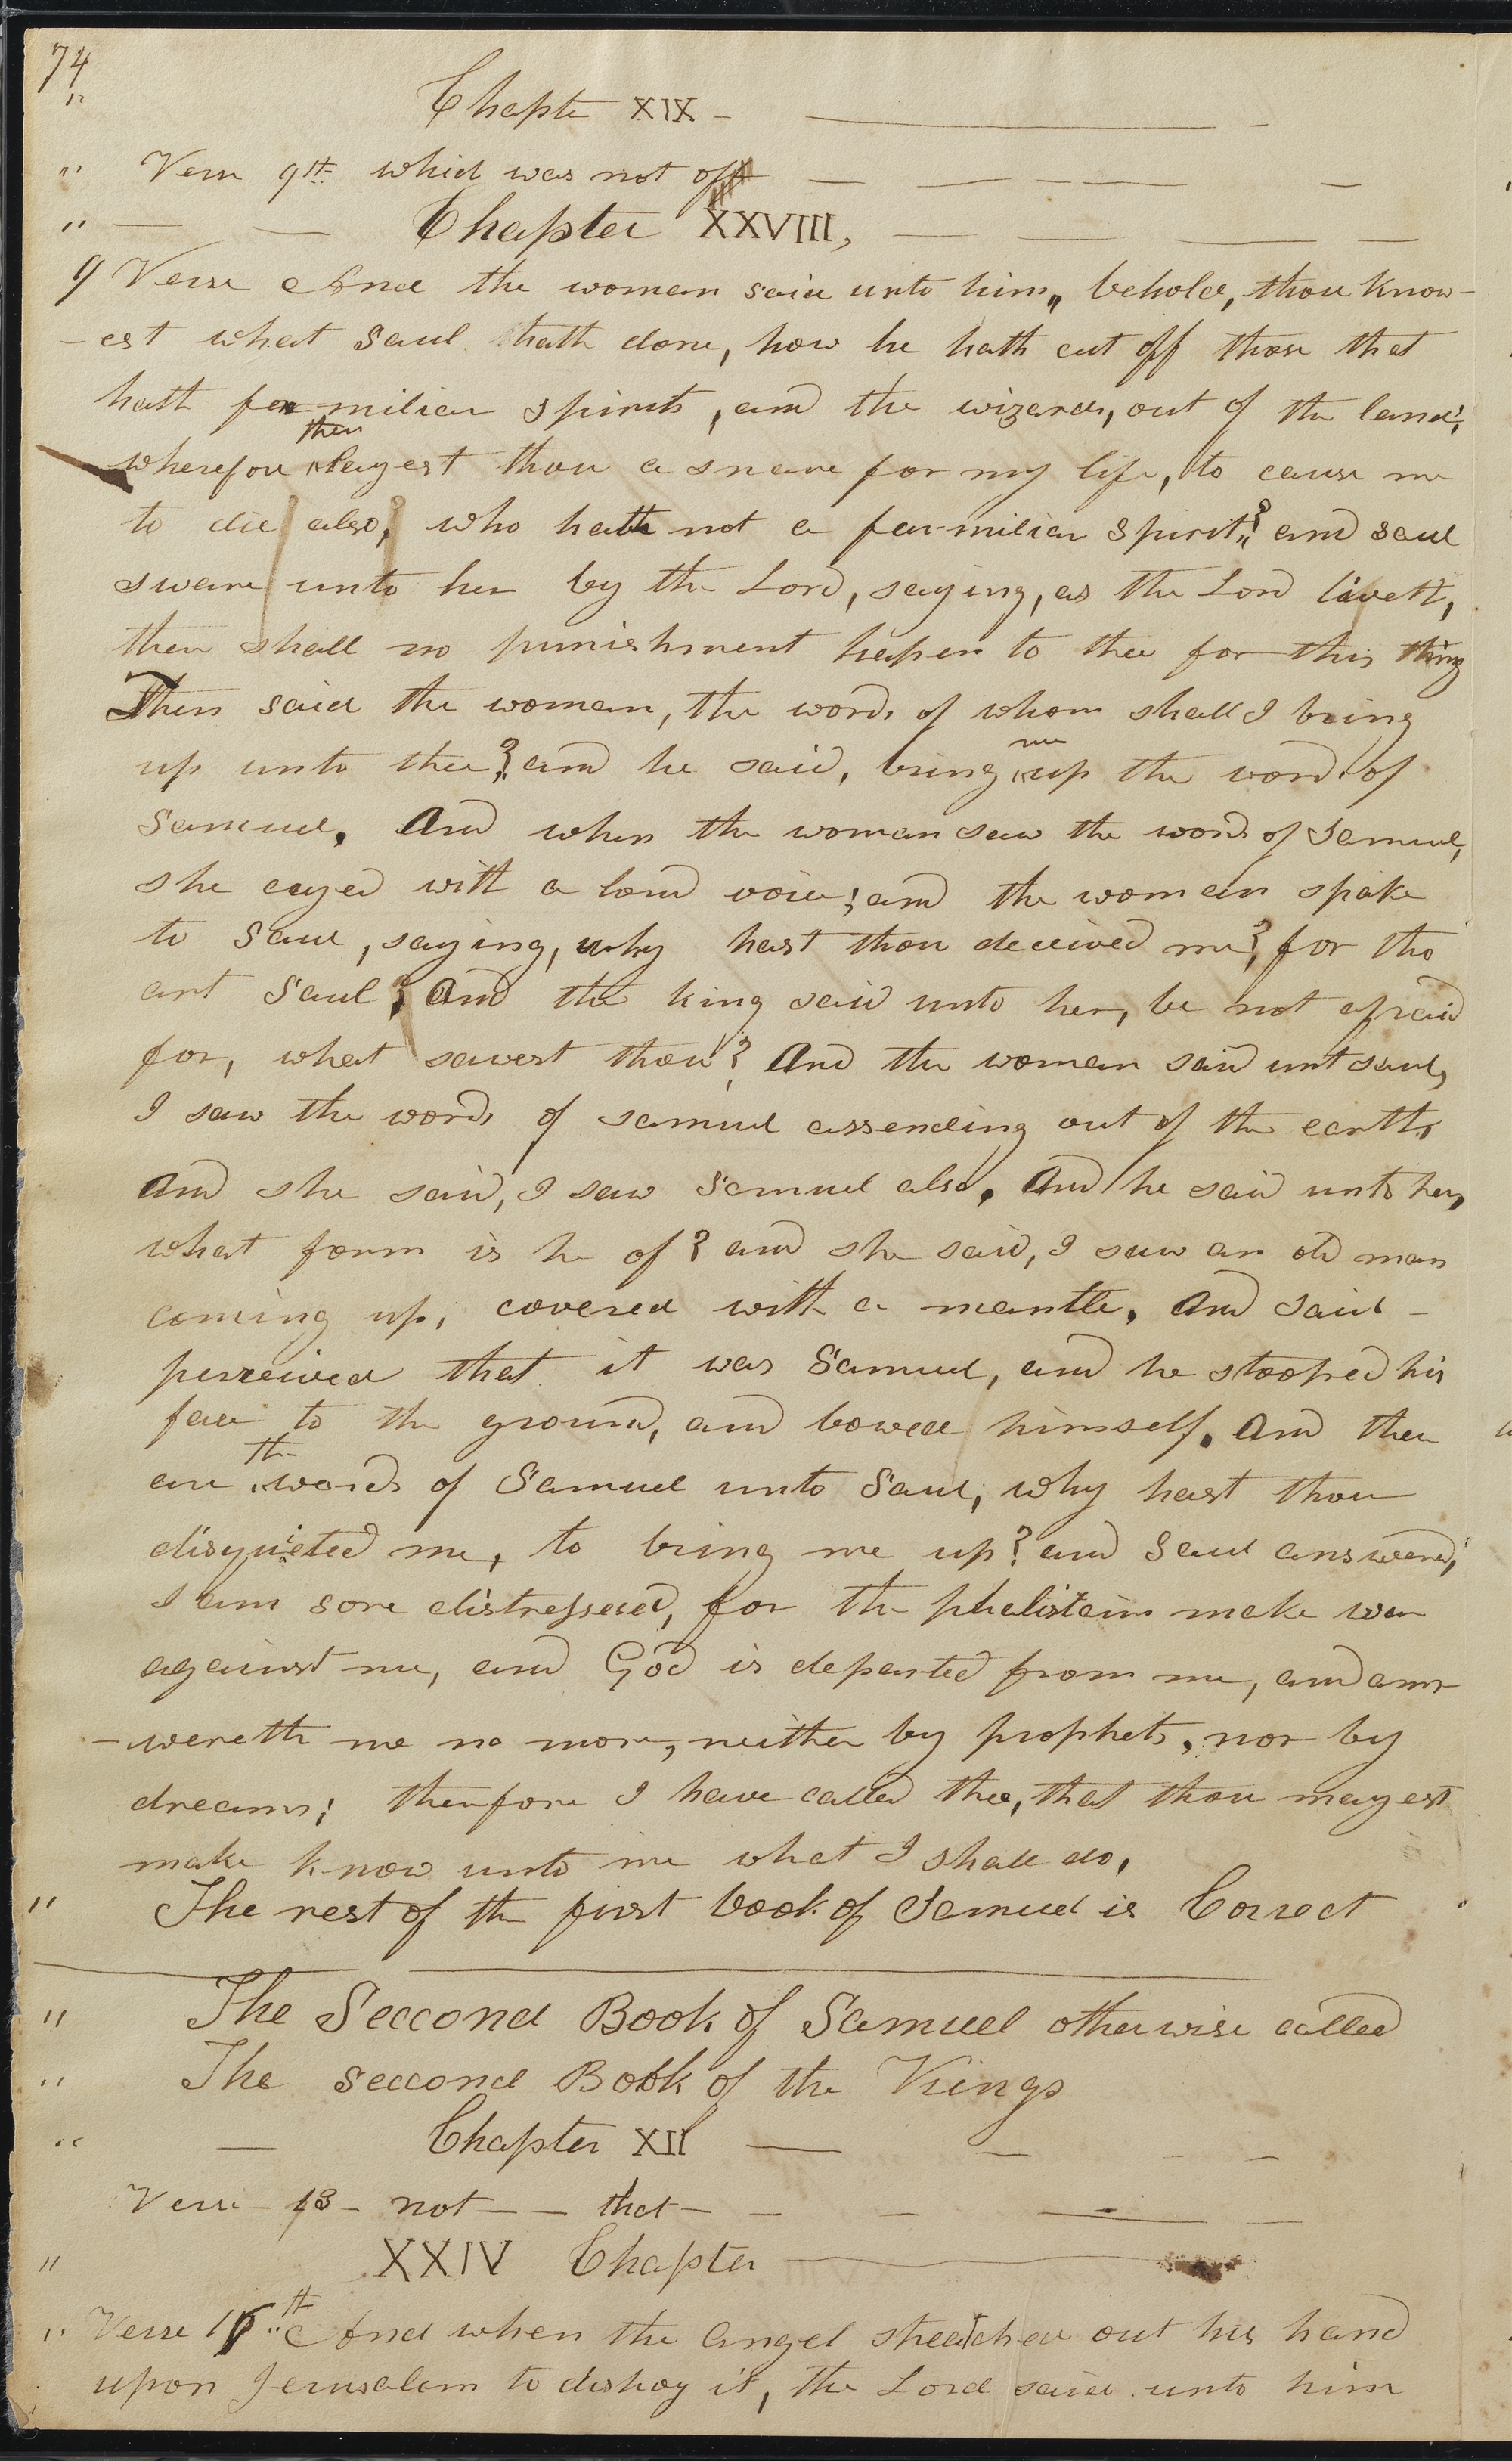 74
" Chapte XIX -
" Verse 9th which was not of
" Chapter XXVIII,
9 Verse And the woman said unto him,, behold, thou know-
-est what Saul hath done, how he hath cut off those that
hath familiar spirits, and the wizards, out of the land;
wherefore then layest thou a snare for my life, to cause me
to die also, who hath not a familiar spirit? and Saul
sware unto her by the Lord, saying, as the Lord liveth,
there shall no punishment hapen to thee for this thing
Then said the woman, the words of whom shall I bring
up unto thee? and he said, bring me up the words of
Samuel. And when the woman saw the words of Samuel,
she cryed with a loud voice; and the woman spake
to Saul, saying, why hast thou deceived me? for tho
art Saul; And the king said unto her, be not afraid
for, what sawest thou? And the woman said unt Saul,
I saw the words of Samuel assending out of the earth,
And she said, I saw Samuel also. And he said unto her,
what form is he of? and she said, I saw an old man
coming up, covered with a mantle. And Saul -
perceived that it was Samuel, and he stooped his
face to the ground, and bowed himself. And these
are the words of Samuel unto Saul; why hast thou
disquieted me, to bring me up? and Saul answered,
I am sore distressed, for the phelisteins make war
against me, and God is departed from me, and ans-
-wereth me no more, neither by prophets, nor by
dreams; therefore I have called thee, that thou mayest
make know unto me what I shall do,
" The rest of the first book of Samuel is Correct
" The Seccond Book of Samuel otherwise called
" The seccond Book of the Kings
" Chapter XII
Verse 13 - not - - that -
" XXIV Chapter
" Verse 16th And when the angel streatched out his hand
upon Jerusalem to distroy it, the Lord said unto him